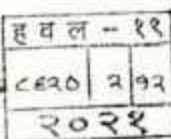 हवल - ११
८६२० २ १२
२०२१